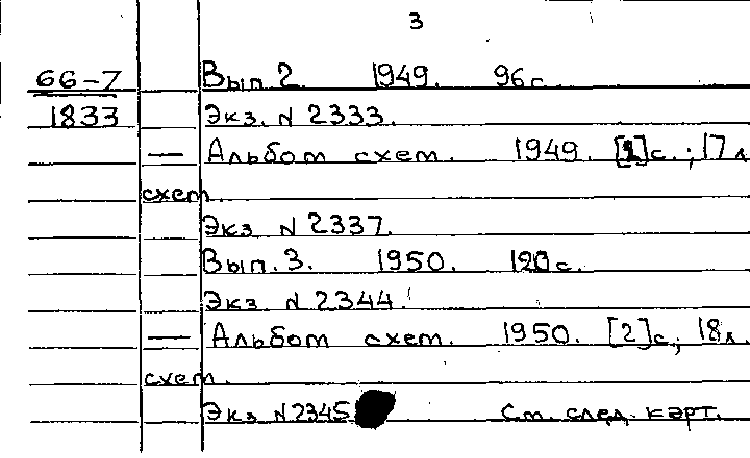 3
66-7 Вып. 2. 1949. 96 с.
1833 Экз. N 2333.
— Альбом схем. 1949. [1] с.; 17 л
схем.
Экз. N 2337.
Вып. 3. 1950. 120 с.
Экз. N 2344.
— Альбом схем. 1950. [2] с; 18 л.
схем.
Экз. N 2345 См. след. карт.